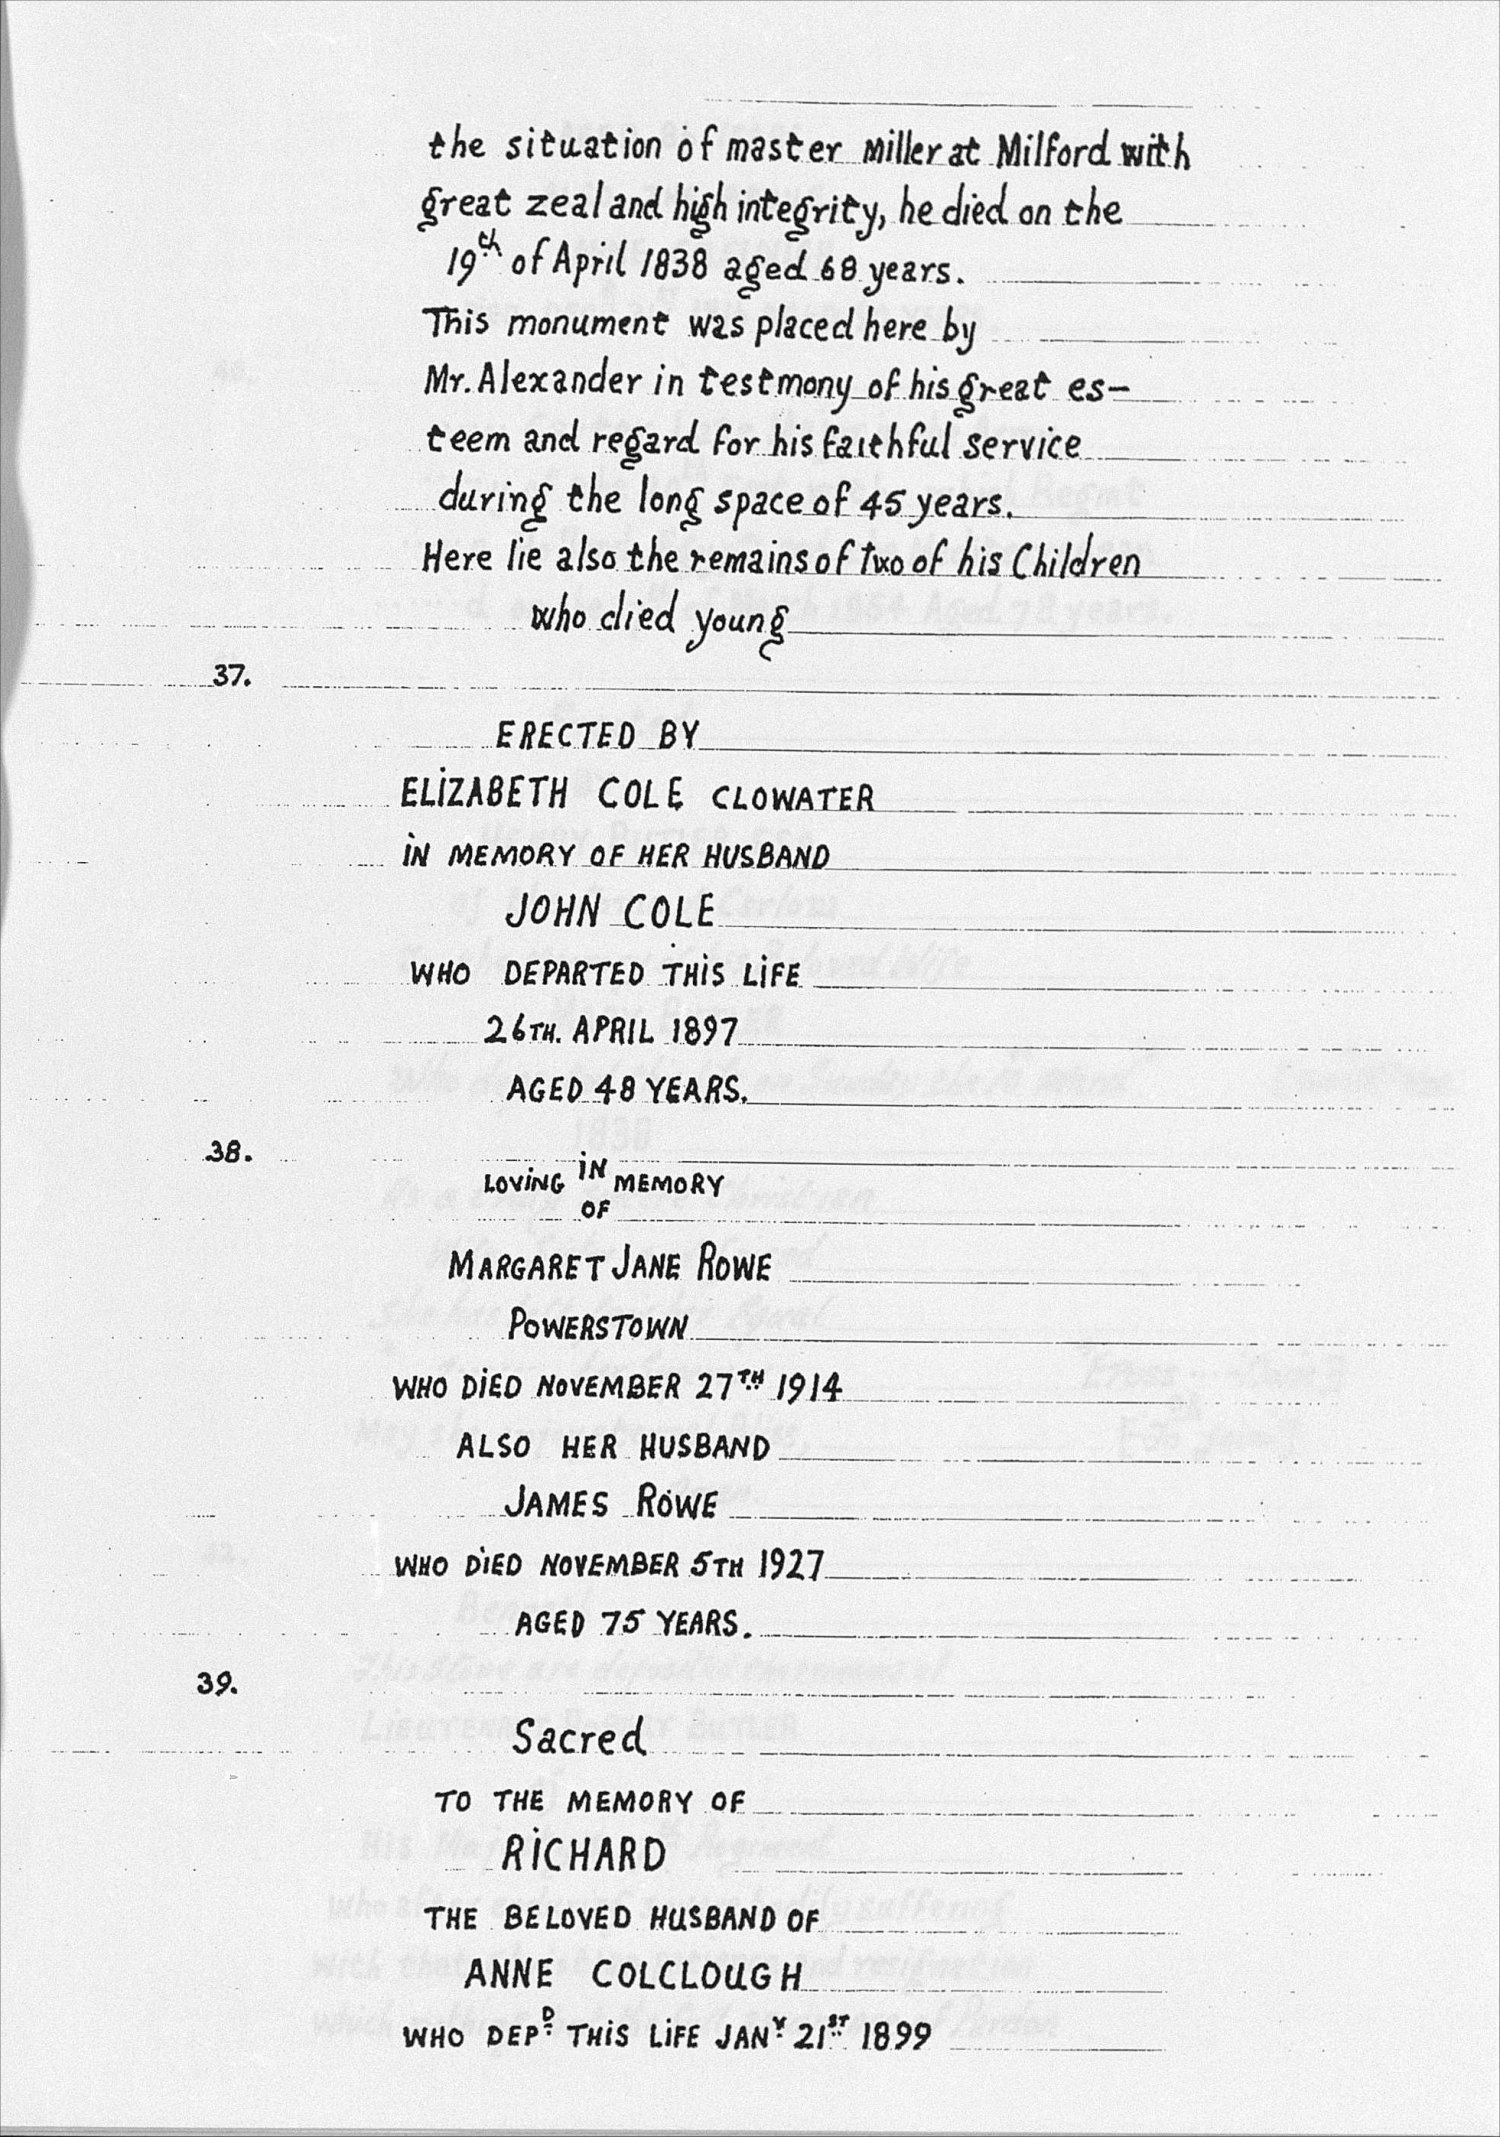 the situation of master Miller at Milford with
great zeal and high integrity, he died on the
19th of April 1838 aged 68 years.
This monument was placed here by
Mr. Alexander in testmony of his great es-
teem and regard for his faithful service
during the long space of 45 years.
Here lie also the remains of two of his Children
who died young
37.
ERECTED BY
ELIZABETH COLE CLOWATER
IN MEMORY OF HER HUSBAND
JOHN COLE
WHO DEPARTED THIS LIFE
26TH. APRIL 1897
AGED 48 YEARS.
38.
LOVING IN MEMORY
OF
MARGARET JANE ROWE
POWERSTOWN
WHO DIED NOVEMBER 27TH 1914
ALSO HER HUSBAND
JAMES ROWE
WHO DIED NOVEMBER 5TH 1927
AGED 75 YEARS.
39.
Sacred
TO THE MEMORY OF
RICHARD
THE BELOVED HUSBAND OF
ANNE COLCLOUGH
WHO DEPD THIS LIFE JANY 21ST 1899